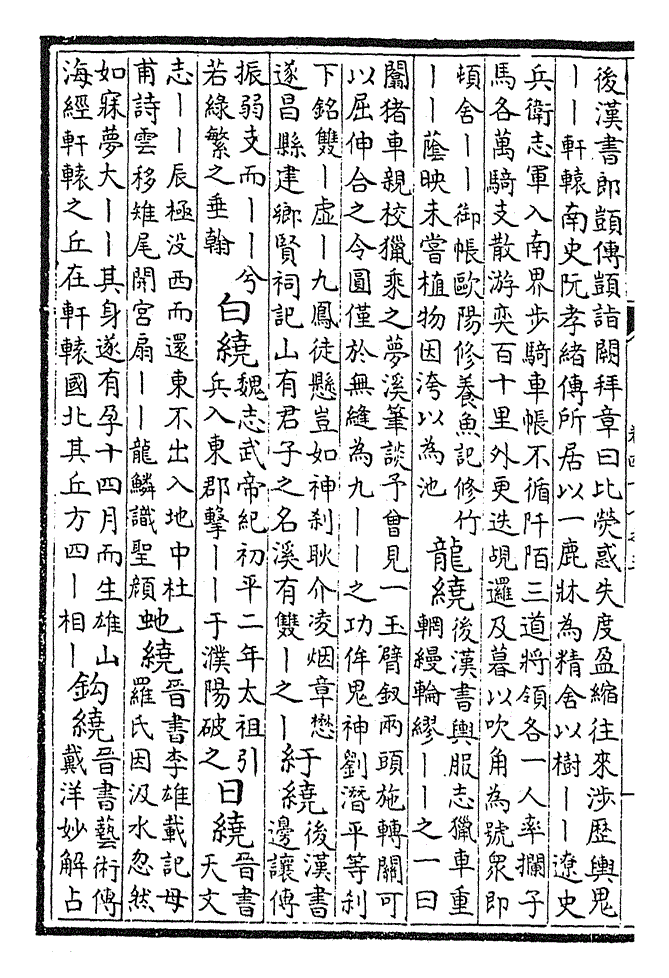 後漢書郎顗傳顗詣闕拜章曰比熒惑失度盈縮往來涉歷輿鬼
丨丨軒轅南史阮孝緒傳所居以一鹿牀為精舍以樹丨丨遼史
兵衛志軍入南界步騎車帳不循阡陌三道將領各一人率攔子
馬各萬騎支散游奕百十里外更迭覘邏及暮以吹角為號眾即
頓舍丨丨御帳歐陽修養魚記修竹
丨丨蔭映未嘗植物因洿以為池
龍繞
後漢書輿服志獵車重
輞縵輪繆丨丨之一曰
闟猪車親校獵乘之夢溪筆談予曾見一玉臂釵兩頭施轉關可
以屈伸合之令圓僅於無縫為九丨丨之功侔鬼神劉潛平等刹
下銘雙丨虛丨九鳳徒懸豈如神刹耿介凌烟章懋
遂昌縣建鄉賢祠記山有君子之名溪有雙丨之丨
紆繞
後漢書
邊讓傳
振弱支而丨丨兮
若綠繁之垂翰
白繞
魏志武帝紀初平二年太祖引
兵入東郡擊丨丨于濮陽破之
日繞
晉書
天文
志丨丨辰極没西而還東不出入地中杜
甫詩雲移雉尾開宮扇丨丨龍鱗識聖顏
虵繞
晉書李雄載記母
羅氏因汲水忽然
如寐夢大丨丨其身遂有孕十四月而生雄山
海經軒轅之丘在軒轅國北其丘方四丨相丨
鈎繞
晉書藝術傳
戴洋妙解占